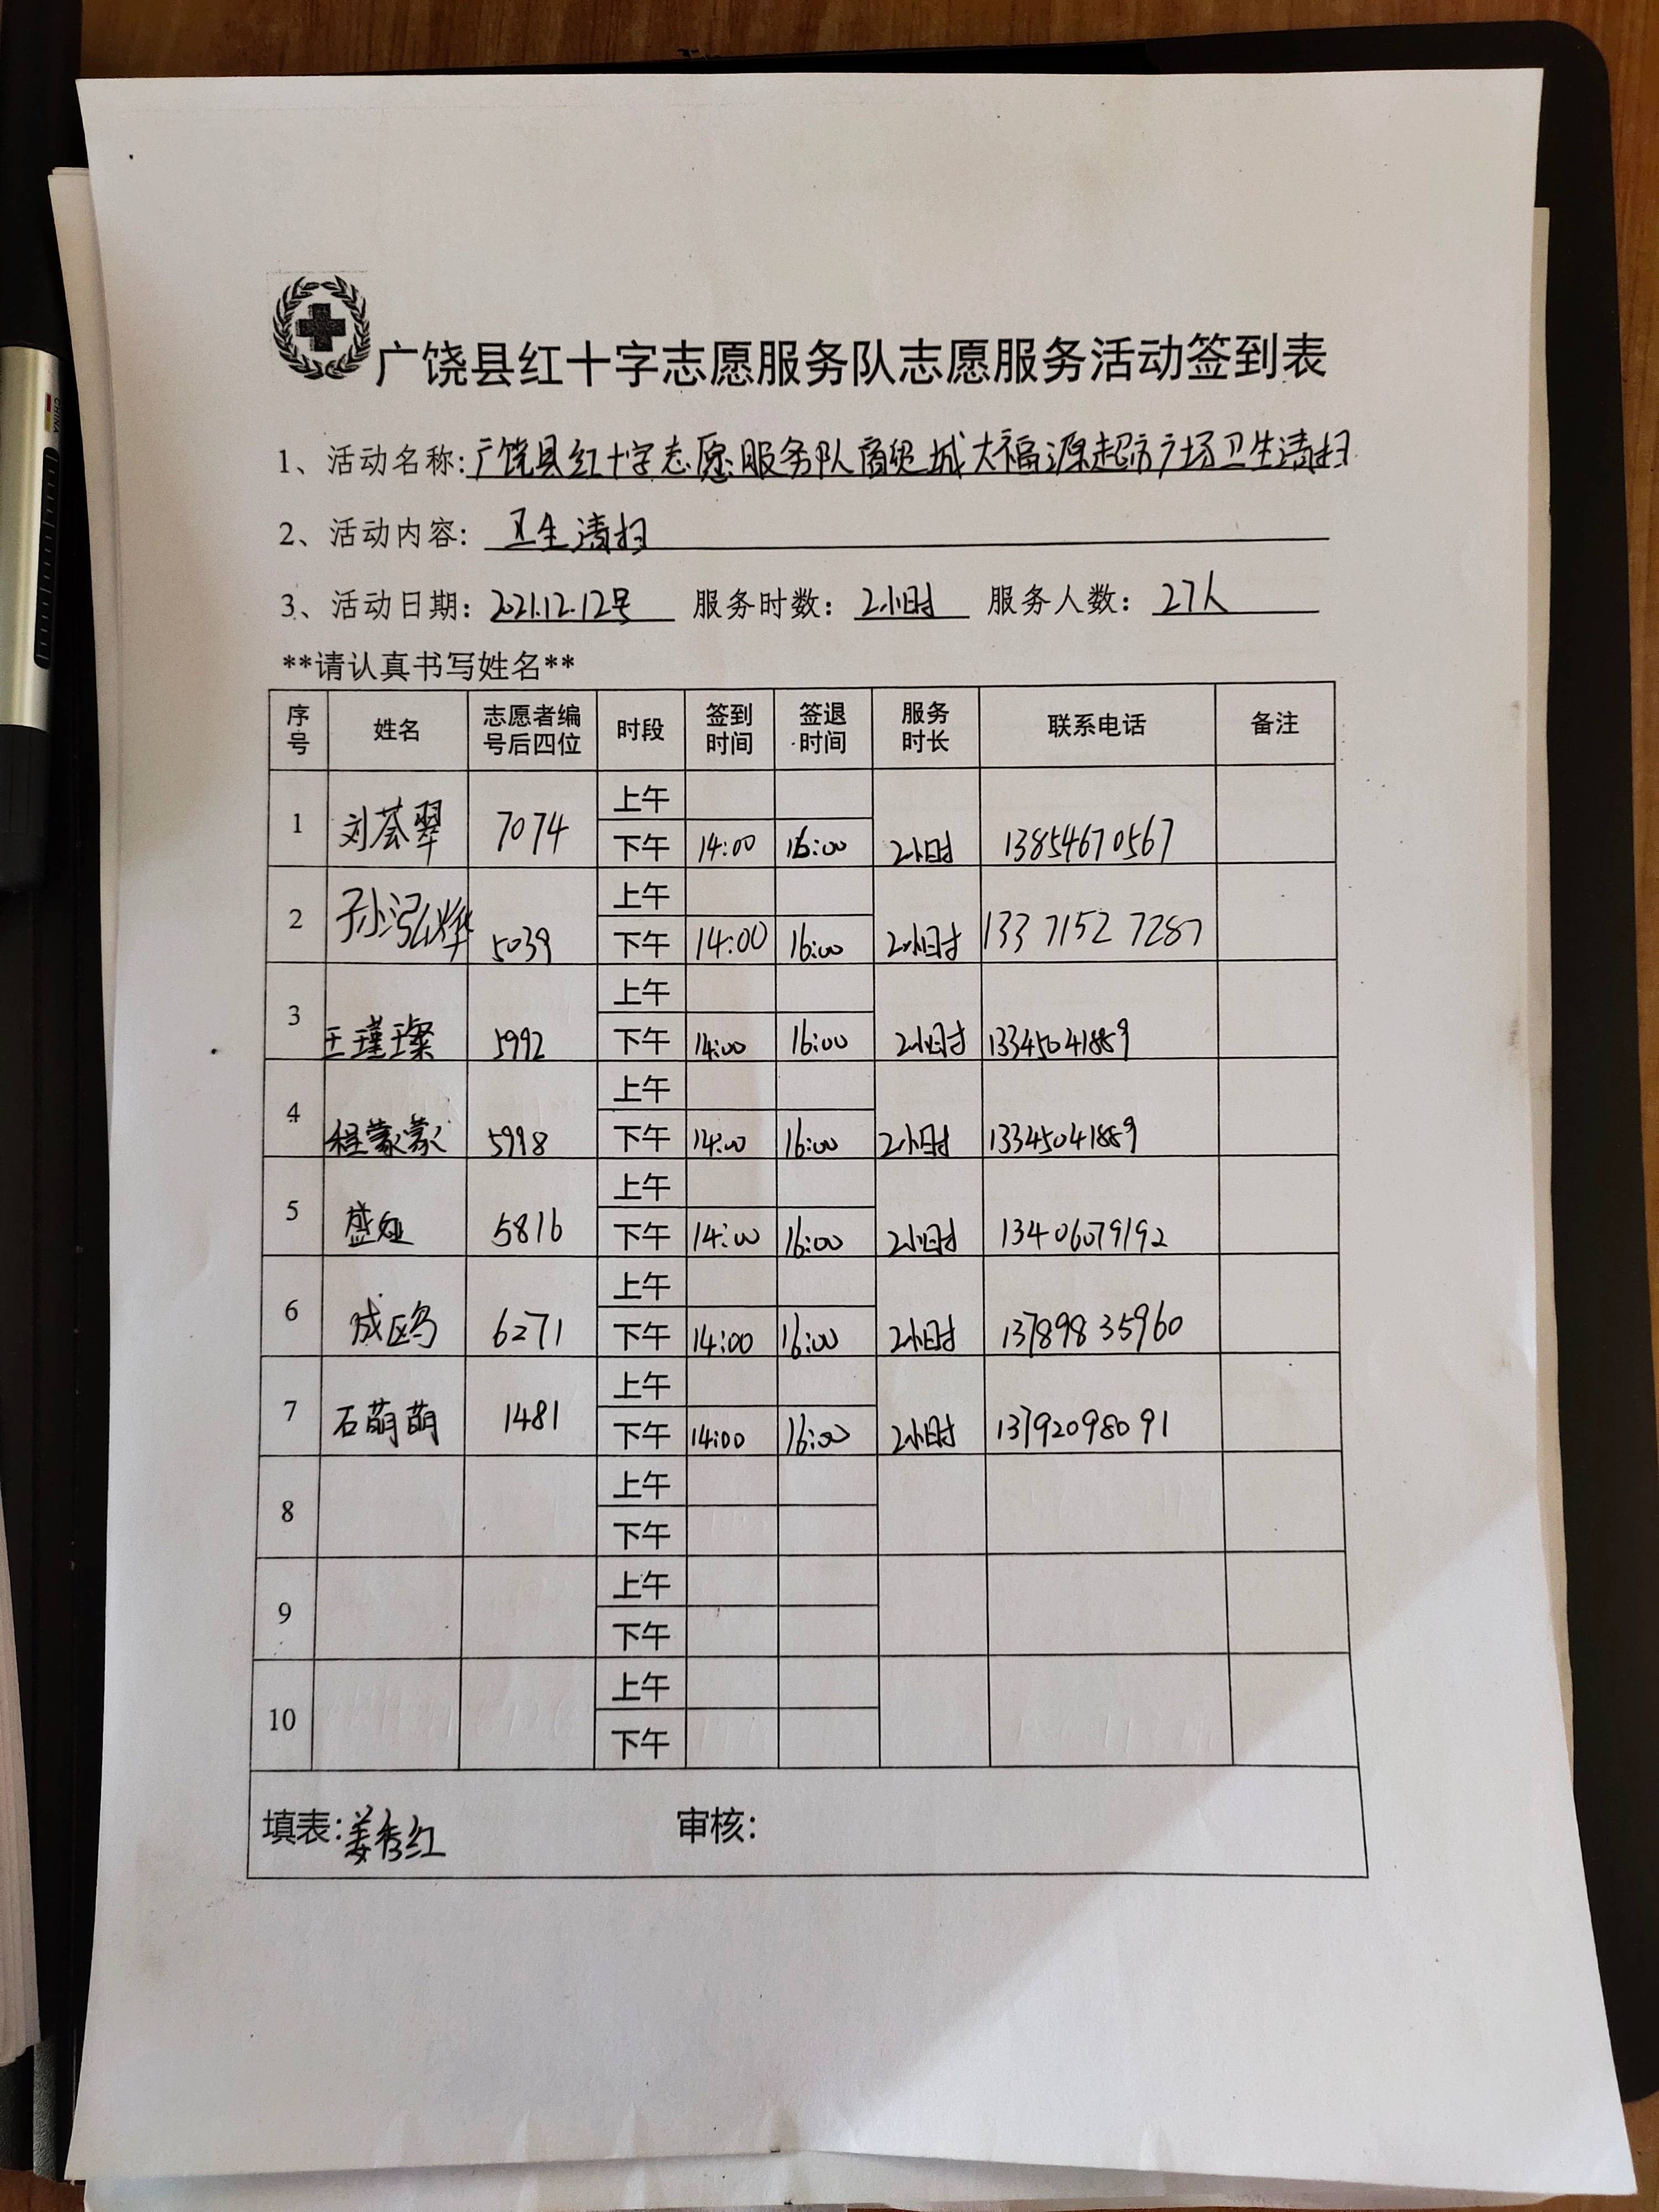 广饶县红十字志愿服务队志愿服务活动签到表
1、活动名称:广饶县红十字志愿服务队商贸城大福源超市广场卫生清扫
2、活动内容: 卫生清扫
3、活动日期: 2021.12.12号 服务时数: 2小时 服务人数: 27人
**请认真书写姓名**
序号 姓名 志愿者编号后四位 时段 签到时间 签退时间 服务时长 联系电话 备注
上午
1 刘荟翠 7074 下午 14:00 16:00 2小时 13854670567
上午
2 孙泓烨 5039 下午 14:00 16:00 2小时 133 7152 7287
上午
3 王瑾璨 5992 下午 14:00 16:00 2小时 13345041889
上午
4 程蒙蒙 5998 下午 14:00 16:00 2小时 13345041889
上午
5 5816 下午 14:00 16:00 2小时 13406079192
上午
6 成鸥 6271 下午 14:00 16:00 2小时 13789835960
上午
7 石萌萌 1481 下午 14:00 16:00 2小时 13792098091
上午
8 下午
上午
9 下午
上午
10 下午
填表:姜秀红 审核:
CHINA